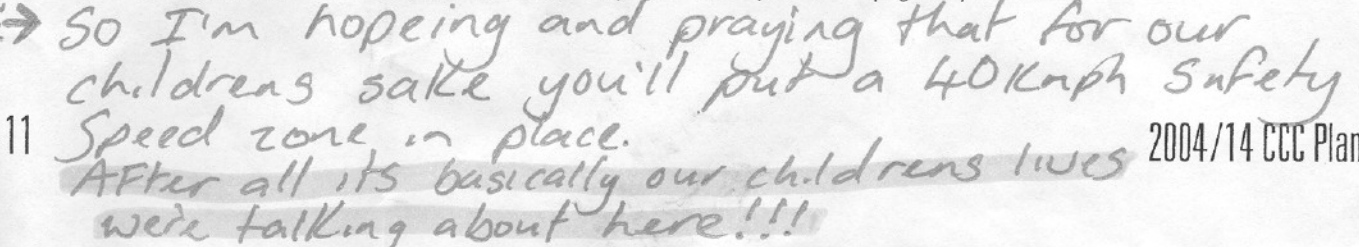 → So I'm hopeing and praying that for our
childrens sake you'll put a 40Kmph Safety
11 Speed zone in place. 2004/14 CCC Plan
AFter all its basically our childrens lives
we're talking about here!!!